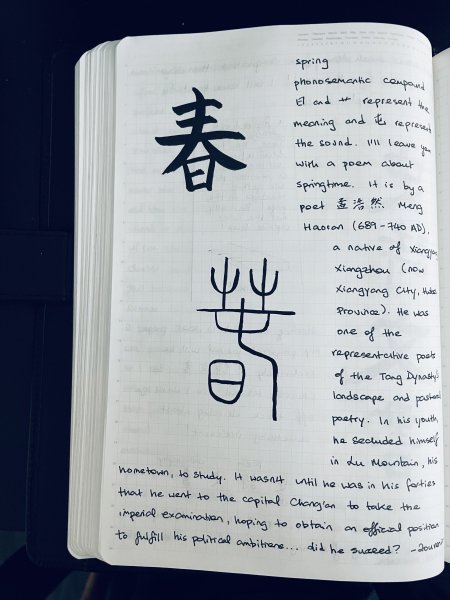 春
spring
phonosemantic compound
日 and 艹 represent the
meaning and 屯 represent
the sound. I'll leave you
with a poem about
springtime. It is by a
poet 孟浩然 Meng
Haoran (689-740 AD),
a native of Xiangyang
Xiangzhou (now
Xiangyang City, Hubei
Province). He was
one of the
representative poets
of the Tang Dynasty's
landscape and pastoral
poetry. In his youth,
he secluded himself
in Lu Mountain, his
hometown, to study. It wasn't until he was in his forties
that he went to the capital Chang'an to take the
imperial examination, hoping to obtain an official position
to fulfill his political ambitions... did he succeed?